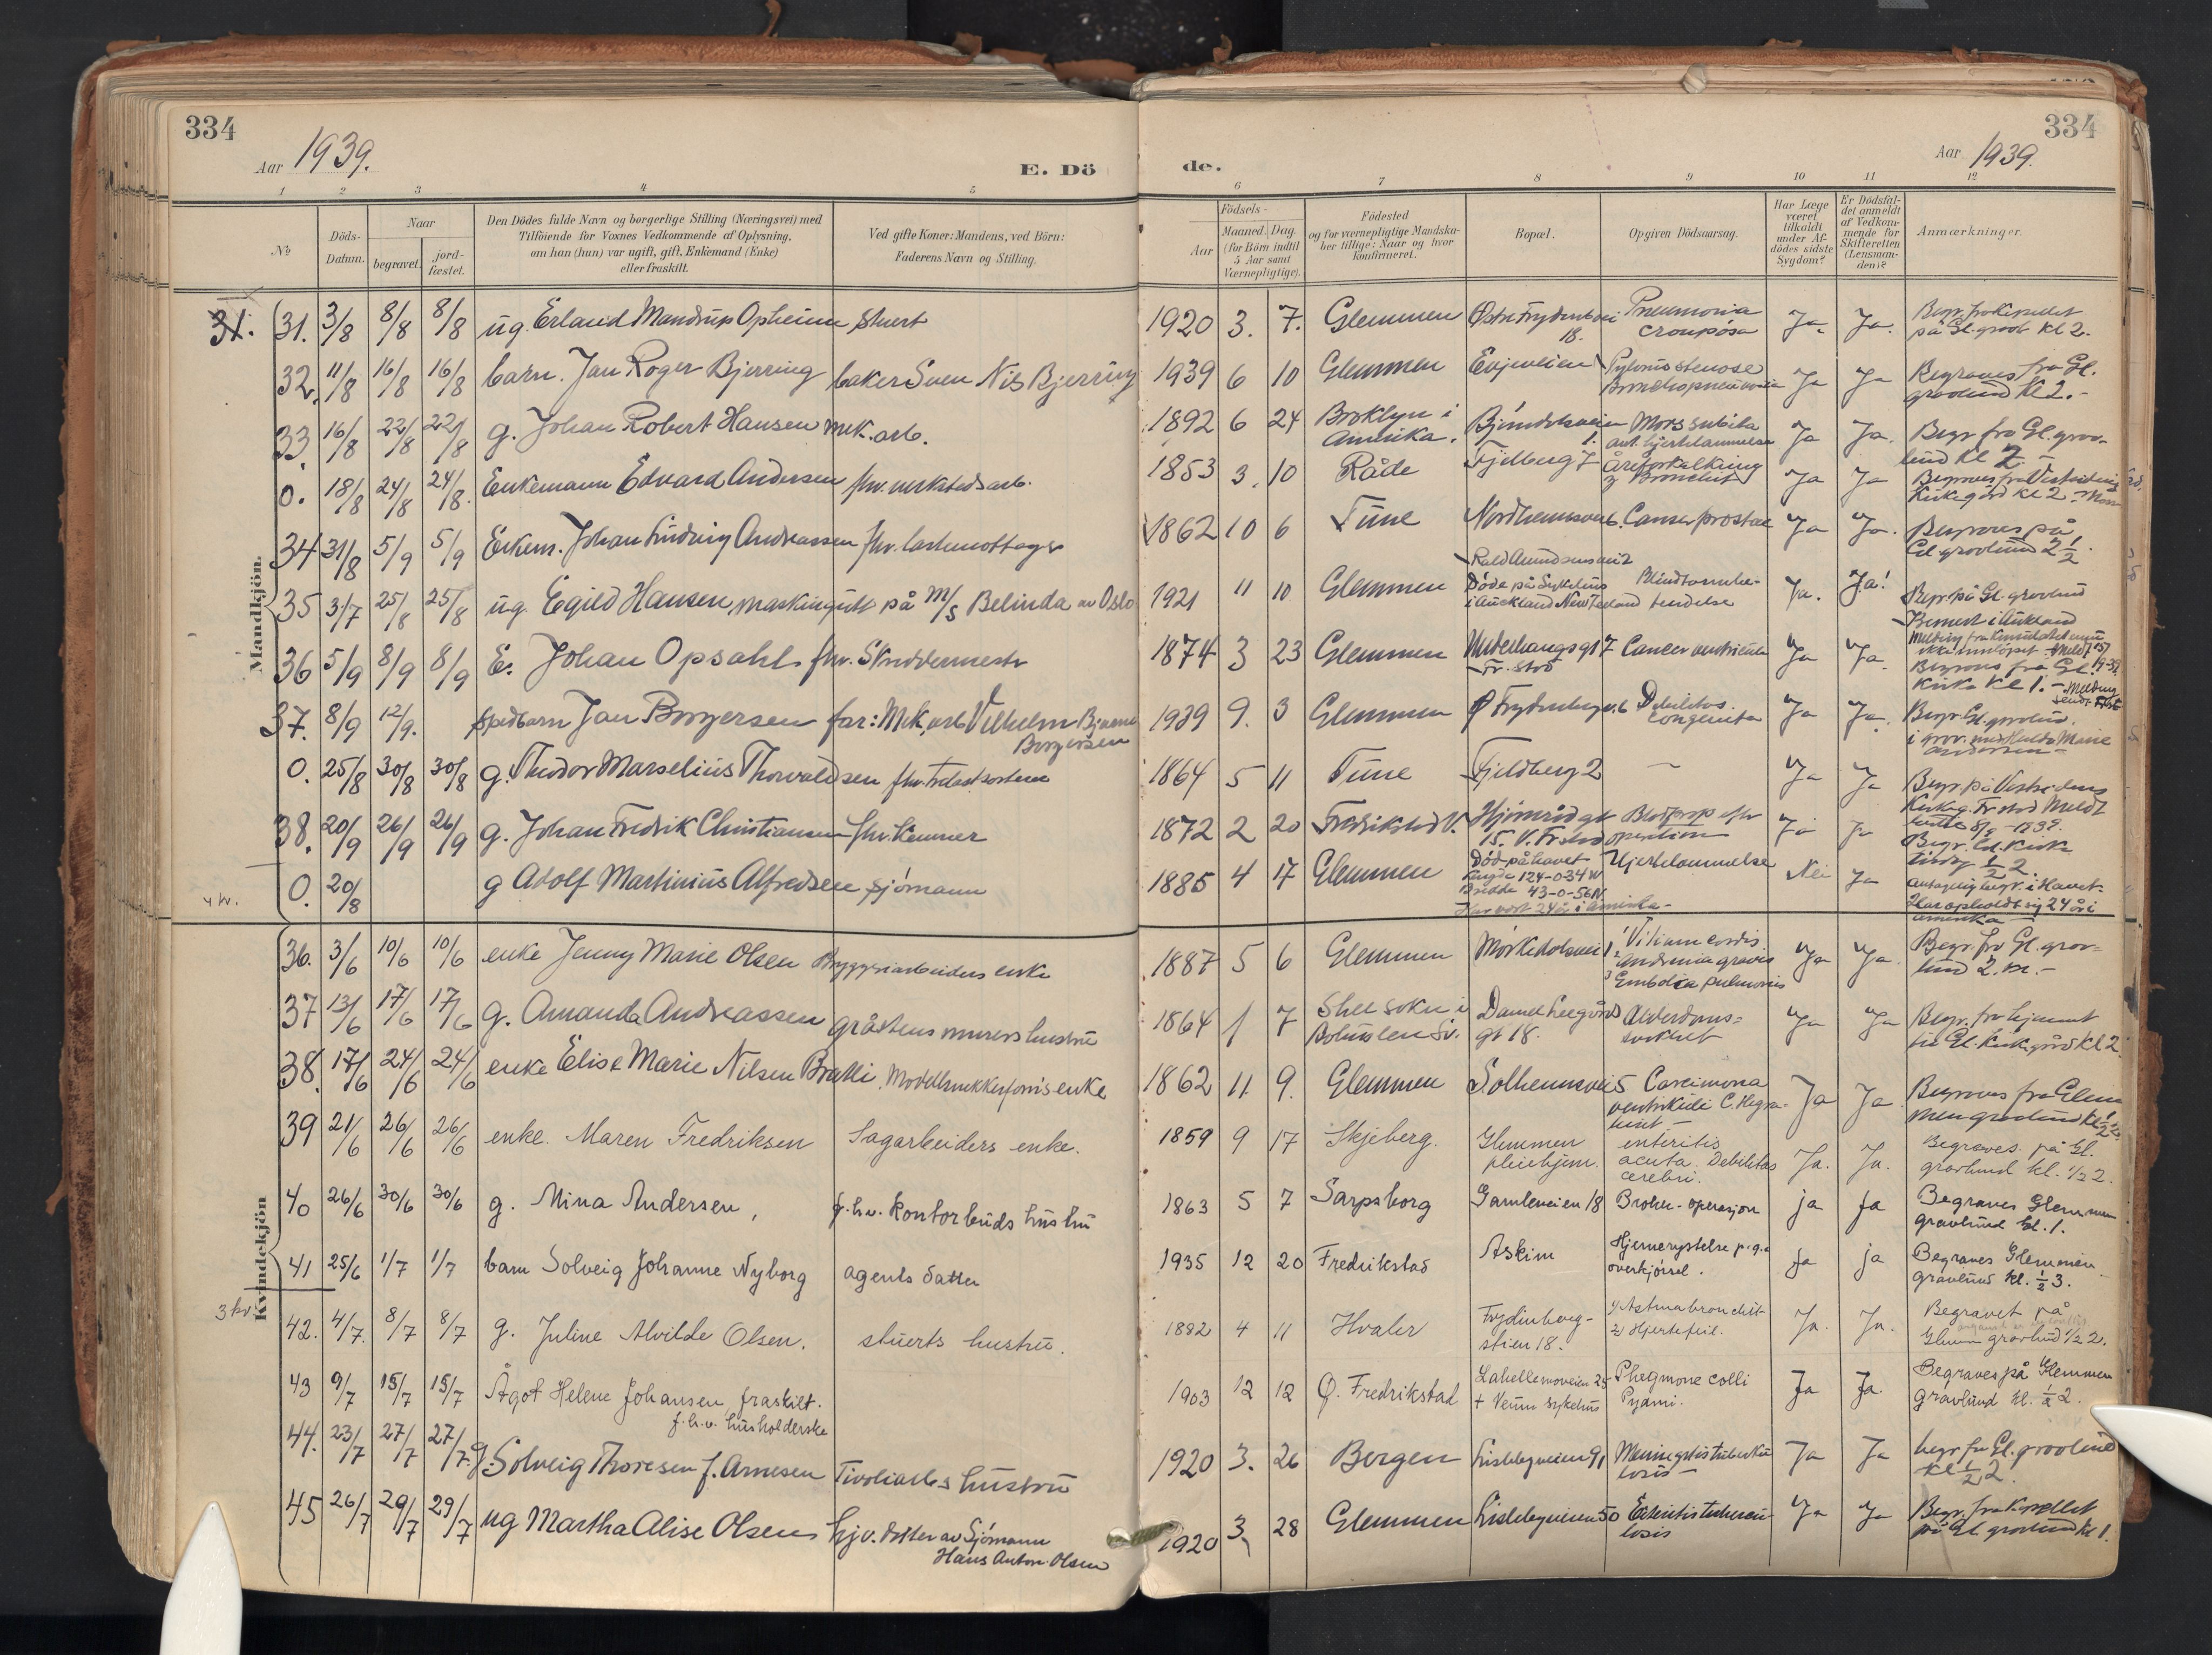 334
Aar 1939.
E. Dö
de.
334
Aar 1939.
1 2 3 4 5 6 7 8 9 10 11 12
No
Döds-Datum.
Naar
begravet.
jord-fæstet.
Den Dödes fulde Navn og borgerlige Stilling (Næringsvei) med
Tilföiende for Voxnes Vedkommende af Oplysning,
om han (hun) var ugift, gift, Enkemand (Enke)
eller fraskilt.
Ved gifte Koner: Mandens, ved Börn:
Faderens Navn og Stilling.
Födsels-
Aar
Maaned. Dag.
(for Börn indtil
5 Aar samt
Værnepligtige).
Födested
og for værnepligtige Mandska-
ber tillige: Naar og hvor
konfirmeret.
Bopæl.
Opgiven Dödsaarsag.
Har Læge
været
tilkaldt
under Af-
dödes sidste
Sygdom?
Er Dödsfal-
det anmeldt
af Vedkom-
mende for
Skifteretten
(Lensman-
den)?
Anmærkninger.
Mandkjön.
31. 31. 3/8 8/8 8/8 ug. Erland Mandrup Opheim Stuert 1920 3. 7. Glemmen 18. Pneumonia crouposa Ja. Ja. på Gl. kl 2.
32. 11/8 16/8 16/8 barn. Jan Roger Bjerring baker Sven Nis Bjerring 1939 6 10 Glemmen Evjeveien Bronchopneumonia Ja Ja Begraves fra Gl. gravlund kl 2.-
33. 16/8 22/8 22/8 g. Johan Robert Hansen mek. arb. 1892 6 24 Broklyn i Amerika. 1. Mors subita ant. hjertelammelse Ja Ja. Begr fra Gl. grav-lund kl 2.
0. 18/8 24/8 24/8. Enkemann Edvard Andersen fhv. verkstedsarb. 1853 3. 10 Råde Fjelberg 7 Åreforkalkning Bronchit Ja Ja Kirkegård kl 2
34 31/8 5/9 5/9 Enkem. Johan Ludvig Andreassen fhv. lastemottager 1862 10 6 Tune 6. Cancer prostae Ja Ja. Begraves på Gl. gravlund 2 1/2.
35 31/7 25/8 25/8 ug. Egild Hansen maskingutt på M/S Belinda av Oslo 1921 11 10 Glemmen Roald Amundsensvei 2 Döde på Sykehus i Auckland New Zealand Blindtarmbe-tendelse Ja. Ja! Begr. på Gl. gravlund
36 5/9 8/9 8/9 E. Johan Opsahl fhv. Skreddermester 1874 3 23 Glemmen 17 Fr. stad Cancer ventriculi Ja Ja. Begraves fra Gl. Kirke kl 1.
37. 8/9 12/9. spedbarn Jan Borgersen far: Mek. arb Vilhelm Bjarne Borgersen 1939 9. 3 Glemmen 6 Debilitas congenita Ja Ja. Begr. Gl. gravlund. i grav. med Hulda Marie Andersen
0. 25/8 30/8 30/8 g. Theodor Marselius Thorvaldsen fhv. trelastsorterer 1864 5 11 Tune Fjeldberg 2 — Ja Ja
38. 20/9 26/9 26/9 g. Johan Fredrik Christiansen fhv. kemner 1872 2 20 Fredrikstad V. 15. V. Fr.stad Blodprop efter operation Ja Ja Begr. Gl. Kirke 1/2 2.
0. 20/8 g Adolf Martinius Alfredsen sjömann 1885 4 17 Glemmen Död på havet Lengde 124-0-34 W Bredde 43-0-56 N. Har vært 24 år i Amerika- Hjertelammelse Nei Ja antagelig begr. i Havet. Har opholdt sig 24 år i Amerika
4 kv.
Kvindekjön
36. 3/6 10/6 10/6 enke Jenny Marie Olsen Bryggeriarbeiders enke 1887 5 6 Glemmen 1 Vitium cordis. 3 Embolia pulmonis Ja Ja. Begr. fra Gl. grav-lund 2.
37 13/6 17/6 17/6 g. Amanda Andreassen gråstens murers hustru 1864 1 7 Skee sokn i Bohuslen Sv. gt 18. Alderdoms-svakhet Ja Ja Begr. fra hjemmet til Gl. Kirkegård kl 2.
38. 17/6 24/6 24/6 enke Elise Marie Nilsen Bratli Modellsnekkerformanns enke 1862 11. 9. Glemmen Solheimsvei 5 Carcinoma ventrikuli Ja Ja Begraves fra Glem-men gravlund kl
39 21/6 26/6 26/6 enke. Maren Fredriksen Sagarbeiders enke. 1859 9 17 Skjeberg. Glemmen pleiehjem. enteritis acuta. Debilitas cerebri. Ja. Ja. Begraves. på Gl. gravlund kl. 1/2 2.
40 26/6 30/6 30/6 g. Mina Andersen, f.h.v. kontorbuds hustru 1863 5 7 Sarpsborg Gamleveien 18 Brokk-operasjon ja ja Begraves Glemmen gravlund kl. 1.
41 25/6 1/7 1/7 barn Solveig Johanne Nyborg agents datter 1935 12 20 Fredrikstad Askim Hjernerystelse p.g.a overkjörsel. ja ja Begraves Glemmen gravlund kl. 1/2 3.
3 kv.
42. 4/7. 8/7 8/7 g. Juline Alvilde Olsen. stuerts hustru. 1892 4 11 Hvaler Frydenberg-stien 18. 1) Astmabronchit 2) Hjertefeil. Ja. Ja. Begravet på Glemm gravlund 1/2 2.
43 9/7 15/7 15/7 Ågot Helene Johansen fraskilt. f.h.v. husholderske 1903 12 12 Ö. Fredrikstad Lahellemoveien 25 + Veum sykehus Phegmone colli Pyämi. Ja Ja. Begraves på Glemmen gravlund kl. 1/2 2.
44. 23/7 27/7 27/7. g. Solveig Thoresen f. Arnesen Tivoliarb.s hustru 1920 3. 26 Bergen Lislebyveien 91 Meningitis tuberku-losis Ja Ja begr. fra Gl. gravlund kl 1/2 2.
45 26/7 29/7 29/7 ug Martha Alise Olsen hjv. datter av Sjömann Hans Anton Olsen 1920 3. 28 Glemmen Lislebyveien 50 tubercu-losis Ja Ja Begr. fra Kapellet på Gl. gravlund kl 1.